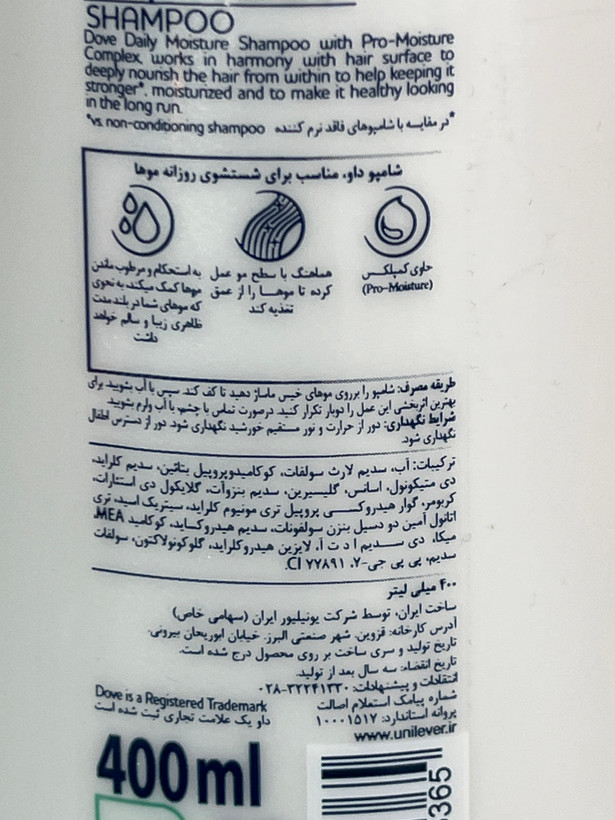 SHAMPOO
Dove Daily Moisture Shampoo with Pro-Moisture
Complex, works in harmony with hair surface to
deeply nourish the hair from within to help keeping it
stronger*, moisturized and to make it healthy looking
in the long run.
*vs. non-conditioning shampoo *در مقایسه با شامپوهای فاقد نرم کننده
شامپو داو، مناسب برای شستشوی روزانه موها
حاوی کمپلکس
(Pro-Moisture)
هماهنگ با سطح مو عمل
کرده تا موها را از عمق
تغذیه کند
به استحکام و مرطوب ماندن
موها کمک میکند به نحوی
که موهای شما در بلند مدت
ظاهری زیبا و سالم خواهد
داشت
طریقه مصرف: شامپو را برروی موهای خیس ماساژ دهید تا کف کند. سپس با آب بشویید. برای
بهترین اثربخشی این عمل را دوبار تکرار کنید. درصورت تماس با چشم، با آب ولرم بشویید.
شرایط نگهداری: دور از حرارت و نور مستقیم خورشید نگهداری شود. دور از دسترس اطفال
نگهداری شود.
ترکیبات: آب، سدیم لارث سولفات، کوکامیدوپروپیل بتائین، سدیم کلراید،
دی متیکونول، اسانس، گلیسیرین، سدیم بنزوآت، گلایکول دی استئارات،
کربومر، گوار هیدروکسی پروپیل تری مونیوم کلراید، سیتریک اسید، تری
اتانول آمین دو دسیل بنزن سولفونات، سدیم هیدروکساید، کوکامید MEA،
میکا، دی سدیم ا د ت آ، لایزین هیدروکلراید، گلوکونولاکتون، سولفات
سدیم، پی پی جی-۷، CI ۷۷۸۹۱.
۴۰۰ میلی لیتر
ساخت ایران، توسط شرکت یونیلیور ایران (سهامی خاص)
آدرس کارخانه: قزوین، شهر صنعتی البرز، خیابان ابوریحان بیرونی.
تاریخ تولید و سری ساخت بر روی محصول درج شده است.
تاریخ انقضاء: سه سال بعد از تولید.
انتقادات و پیشنهادات: ۳۲۲۴۱۳۳۰-۰۲۸
شماره پیامک استعلام اصالت
پروانه استاندارد: ۱۰۰۰۱۵۱۷
www.unilever.ir
Dove is a Registered Trademark
داو یک علامت تجاری ثبت شده است
400ml
365